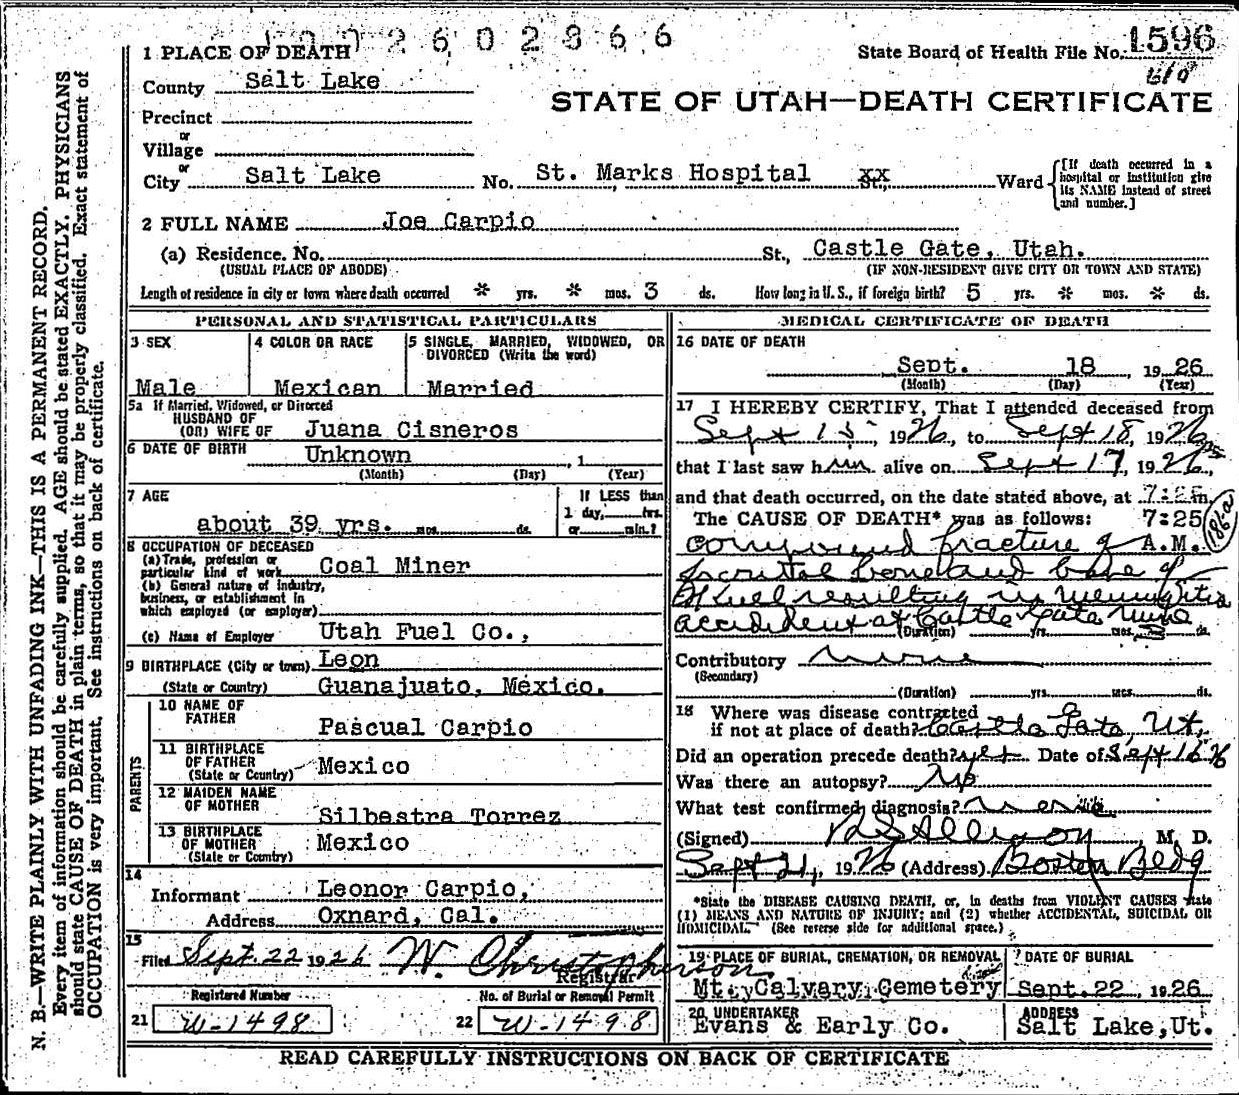 1002602366
State Board of Health File No. 1596
610
STATE OF UTAH—DEATH CERTIFICATE
1 PLACE OF DEATH
County Salt Lake
Precinct
or
Village
or
City Salt Lake No. St. Marks Hospital St., xx Ward
[If death occurred in a hospital or institution give its NAME instead of street and number.]
2 FULL NAME Joe Carpio
(a) Residence. No. St., Castle Gate, Utah.
(USUAL PLACE OF ABODE) (IF NON-RESIDENT GIVE CITY OR TOWN AND STATE)
Length of residence in city or town where death occurred * yrs. * mos. 3 ds. How long in U. S., if foreign birth? 5 yrs. * mos. * ds.
PERSONAL AND STATISTICAL PARTICULARS
3 SEX
Male
4 COLOR OR RACE
Mexican
5 SINGLE, MARRIED, WIDOWED, OR
DIVORCED (Write the word)
Married
5a If Married, Widowed, or Divorced
HUSBAND OF
(OR) WIFE OF Juana Cisneros
6 DATE OF BIRTH Unknown , 1
(Month) (Day) (Year)
7 AGE
about 39 yrs. mos. ds.
If LESS than
1 day, hrs.
or min.?
8 OCCUPATION OF DECEASED
(a) Trade, profession or
particular kind of work Coal Miner
(b) General nature of industry,
business, or establishment in
which employed (or employer)
(c) Name of Employer Utah Fuel Co.,
9 BIRTHPLACE (City or town) Leon
(State or Country) Guanajuato, Mexico.
PARENTS
10 NAME OF
FATHER Pascual Carpio
11 BIRTHPLACE
OF FATHER
(State or Country) Mexico
12 MAIDEN NAME
OF MOTHER Silbestra Torrez
13 BIRTHPLACE
OF MOTHER
(State or Country) Mexico
14
Informant Leonor Carpio,
Address Oxnard, Cal.
15
Filed Sept. 22 1926 W. Christopherson
Registrar
Registered Number
21 W-1498
No. of Burial or Removal Permit
22 W-1498
MEDICAL CERTIFICATE OF DEATH
16 DATE OF DEATH
Sept. 18, 1926
(Month) (Day) (Year)
17 I HEREBY CERTIFY, That I attended deceased from
Sept 15, 1926, to Sept 18, 1926
that I last saw him alive on Sept 17, 1926,
and that death occurred, on the date stated above, at 7:25 m.
The CAUSE OF DEATH* was as follows: 7:25
compound fracture of A.M.
occipital bone and base of
skull resulting in meningitis
accident at Castle Gate mine
(Duration) yrs. mos. 3 ds.
Contributory none
(Secondary)
(Duration) yrs. mos. ds.
18 Where was disease contracted
if not at place of death? Castle Gate, Ut.
Did an operation precede death? yes Date of Sept 16 26
Was there an autopsy? No
What test confirmed diagnosis?
(Signed) Allison M. D.
Sept 21, 1926 (Address) Boston Bldg
*State the DISEASE CAUSING DEATH, or, in deaths from VIOLENT CAUSES state
(1) MEANS AND NATURE OF INJURY; and (2) whether ACCIDENTAL, SUICIDAL OR
HOMICIDAL. (See reverse side for additional space.)
19 PLACE OF BURIAL, CREMATION, OR REMOVAL
Mt. Calvary Cemetery
DATE OF BURIAL
Sept. 22, 1926
20 UNDERTAKER
Evans & Early Co.
ADDRESS
Salt Lake, Ut.
READ CAREFULLY INSTRUCTIONS ON BACK OF CERTIFICATE
N. B.—WRITE PLAINLY WITH UNFADING INK—THIS IS A PERMANENT RECORD.
Every item of information should be carefully supplied. AGE should be stated EXACTLY. PHYSICIANS
should state CAUSE OF DEATH in plain terms, so that it may be properly classified. Exact statement of
OCCUPATION is very important. See instructions on back of certificate.